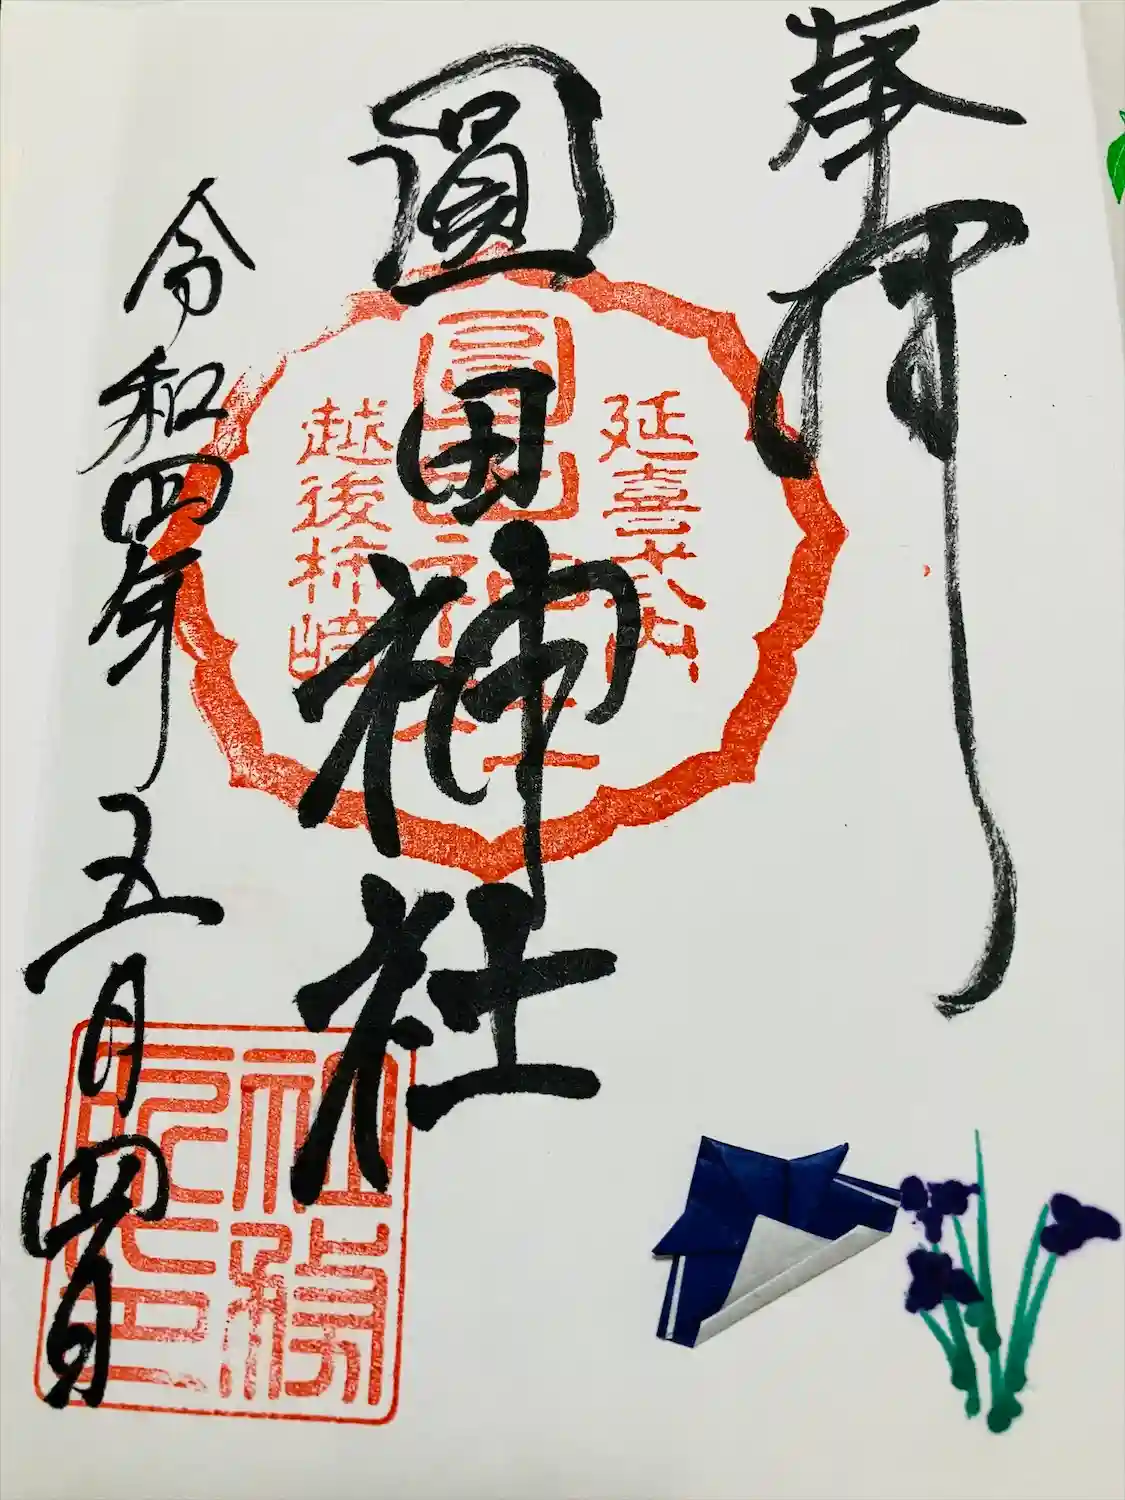 奉拝
延喜式内
圓田神社
越後柿崎
令和四年五月四日
社務所之印